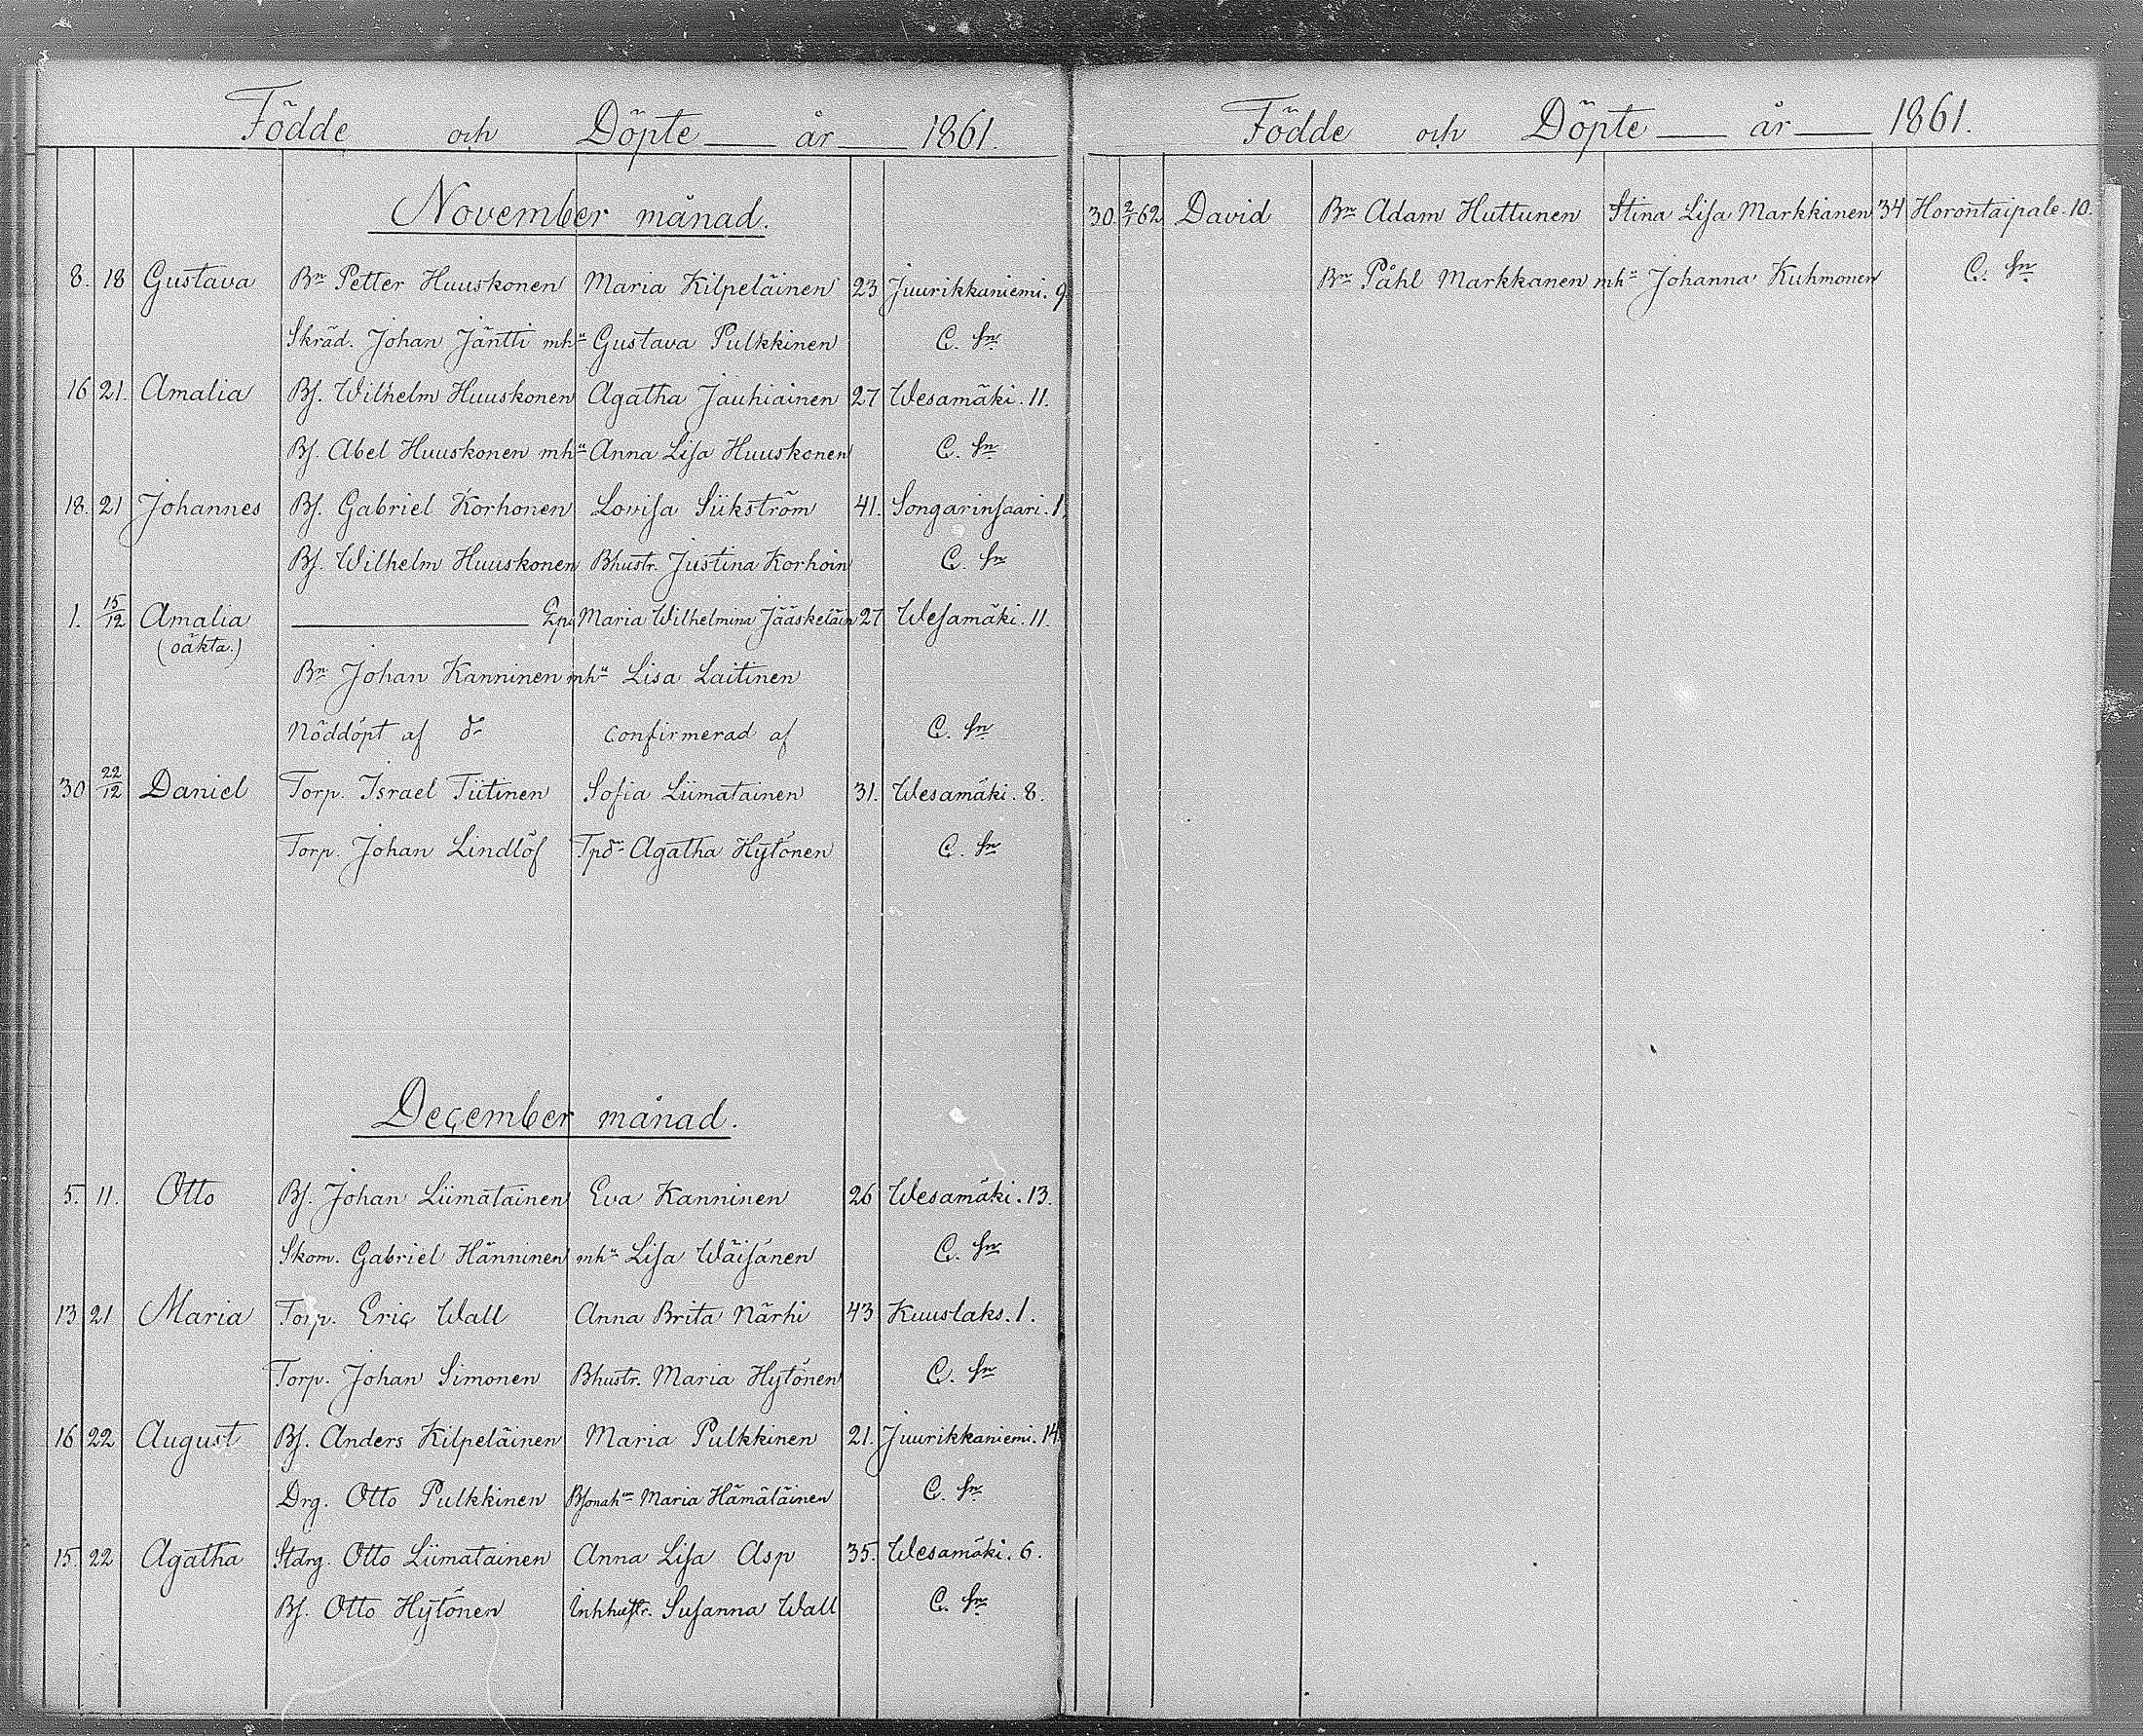 Födde och Döpte — år — 1861.
November månad.
8. 18 Gustava Bn Petter Huuskonen Maria Kilpeläinen 23 Juurikkaniemi. 9
Skräd. Johan Jäntti mhu Gustava Pulkkinen C. Sn
16 21. Amalia Bs. Wilhelm Huuskonen Agatha Jauhiainen 27 Wesamäki. 11.
Bs. Abel Huuskonen mhu Anna Lisa Huuskonen C. Sn
18. 21 Johannes Bs. Gabriel Korhonen Lovisa Siikström 41. Songarinsaari. 1.
Bs. Wilhelm Huuskonen Bhustr. Justina Korhoin C. Sn
1. 15/12 Amalia — Qp. Maria Wilhelmina Jääskeläin 27 Wesamäki. 11.
(oäkta.)
Bn Johan Kanninen mhu Lisa Laitinen
Nöddöpt af dr confirmerad af C. Sn
30 22/12 Daniel Torp. Israel Tiitinen Sofia Liimatainen 31. Wesamäki. 8.
Torp. Johan Lindlöf Tpdr Agatha Hytönen C. Sn
December månad.
5. 11. Otto Bs. Johan Liimatainen Eva Kanninen 26 Wesamäki. 13.
Skom. Gabriel Hänninen mhu Lisa Wäisänen C. Sn
13 21 Maria Torp. Eric Wall Anna Brita Närhi 43 Kuuslaks. 1.
Torp. Johan Simonen Bhustr. Maria Hytönen C. Sn
16 22 August Bs. Anders Kilpeläinen Maria Pulkkinen 21. Juurikkaniemi. 14.
Drg. Otto Pulkkinen Bsonahu Maria Hämäläinen C. Sn
15. 22 Agatha Stdrg. Otto Liimatainen Anna Lisa Asp 35. Wesamäki. 6.
Bs. Otto Hytönen Inhhustr. Susanna Wall C. Sn
Födde och Döpte — år — 1861.
30. 2/1 62 David Bn Adam Huttunen Stina Lisa Markkanen 34 Horontaipale. 10.
Bn Påhl Markkanen mhu Johanna Kuhmonen C. Sn